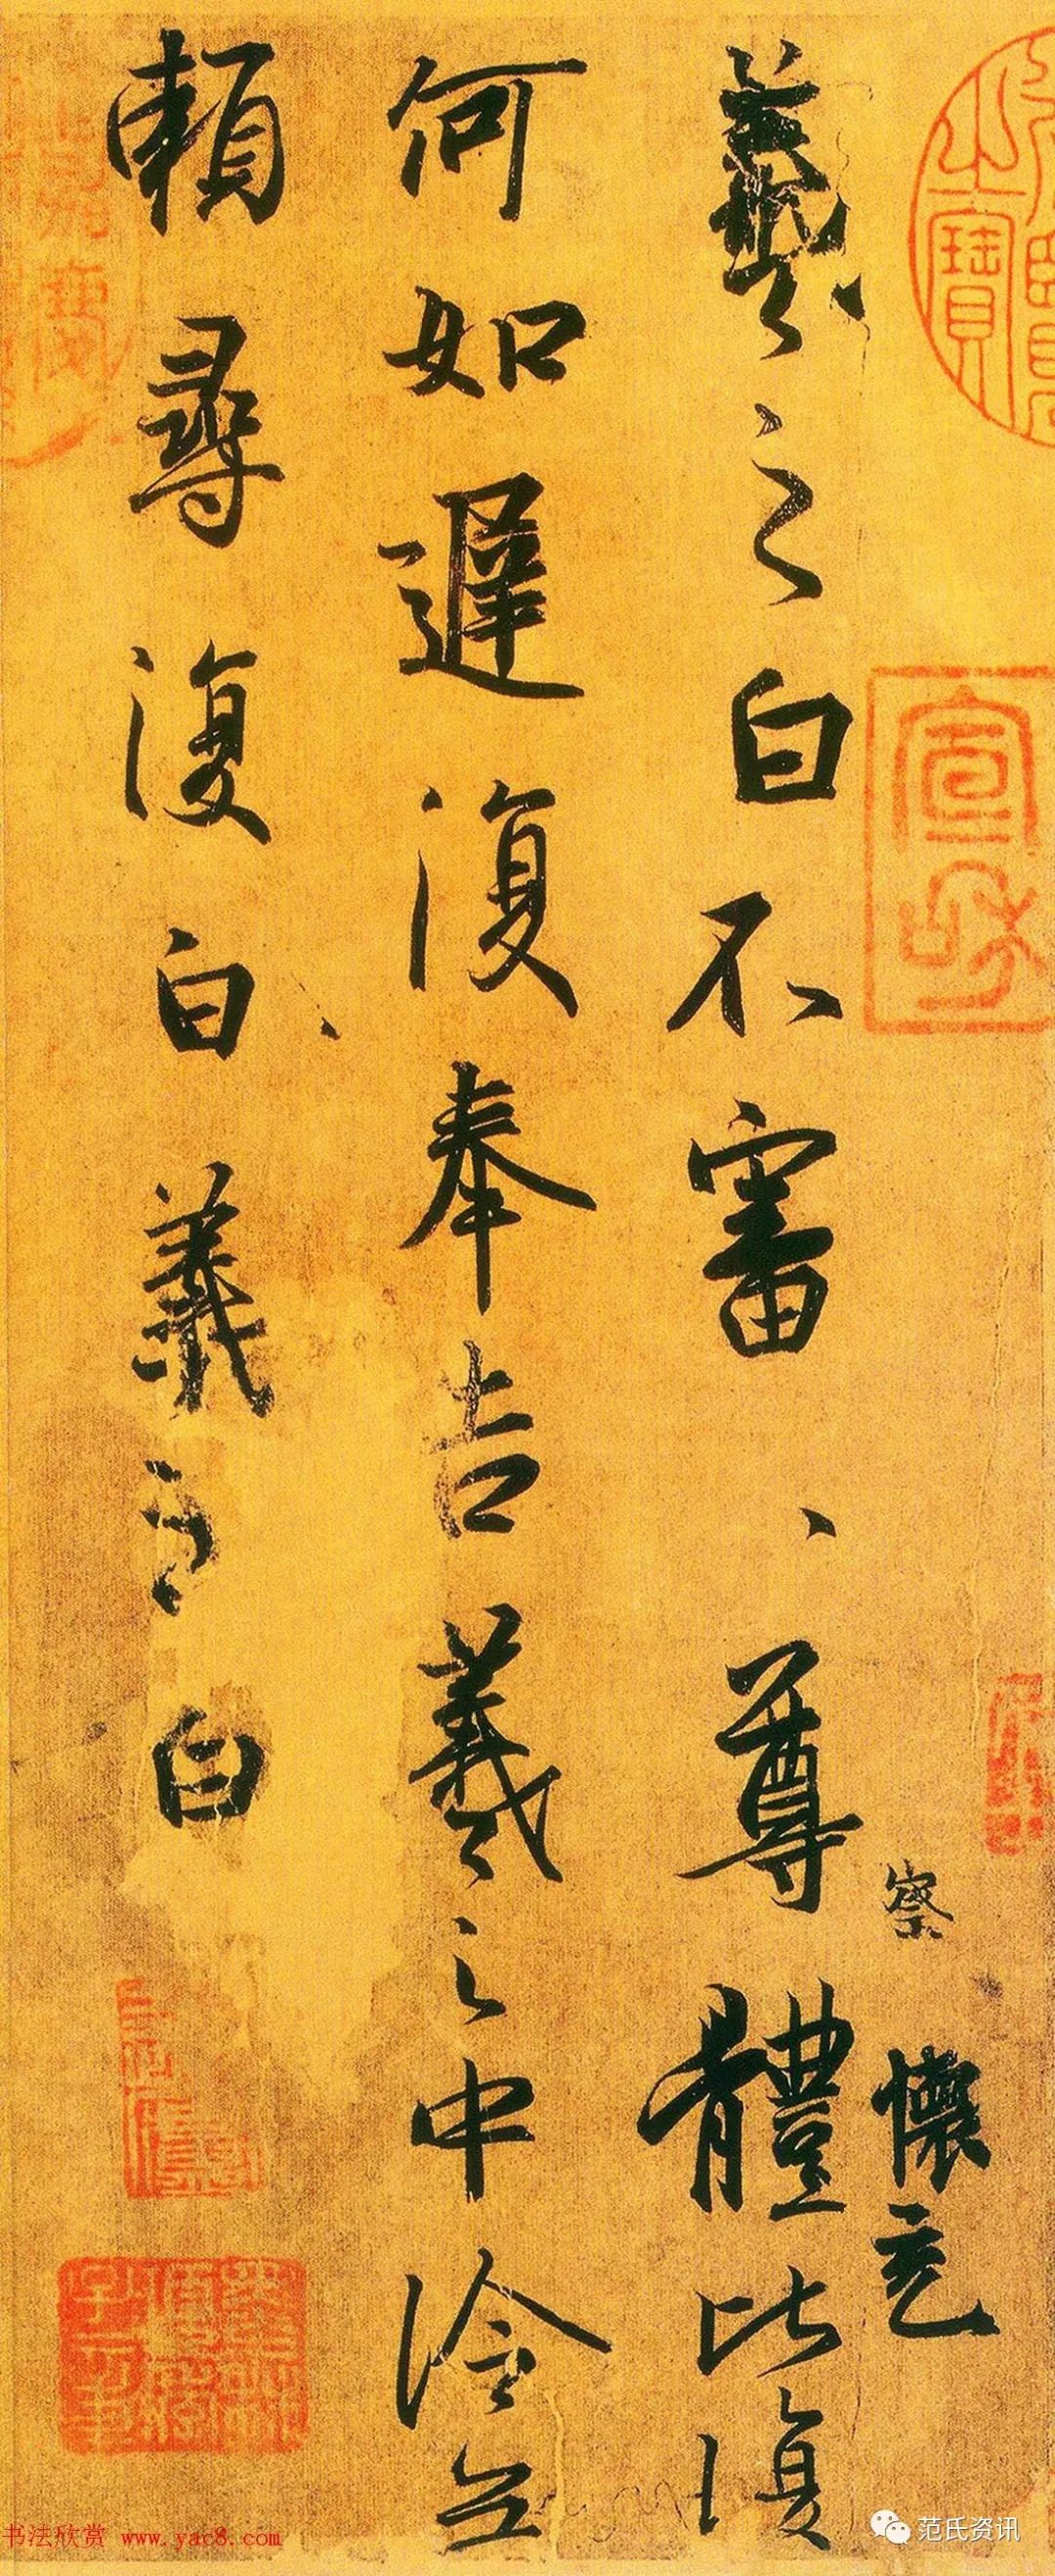 察 懷充
羲之白不審、尊體比復
何如遲復奉告羲之中冷無
賴尋復白羲之白
宣和
书法欣赏 www.yac8.com
范氏资讯